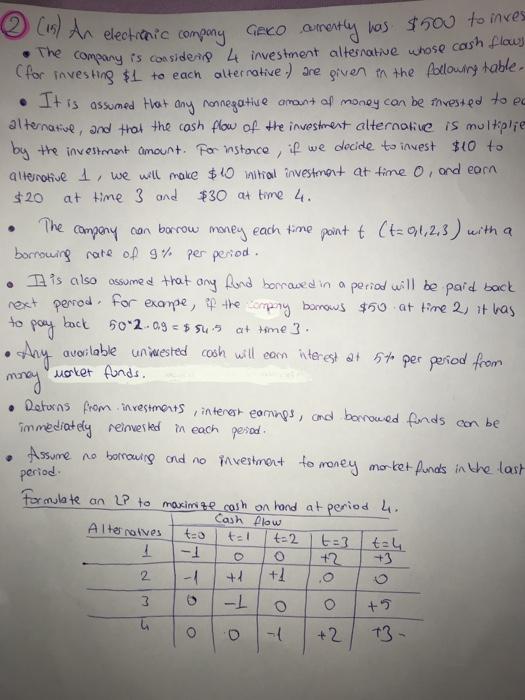 ② (15) An electronic company GEKO currently has $500 to inves
• The company is considering 4 investment alternative whose cash flows
(for investing $1 to each alternative) are given in the following table.
• It is assumed that any nonnegative amount of money can be invested to ea
alternative, and that the cash flow of the investment alternative is multiplie
by the investment amount. For instance, if we decide to invest $10 to
alternative 1, we will make $10 initial investment at time 0, and earn
$20 at time 3 and $30 at time 4.
• The company can borrow money each time point t (t=0,1,2,3) with a
borrowing rate of 9% per period.
• It is also assumed that any fund borrowed in a period will be paid back
next period. For exampe, if the company borrows $50 at time 2, it has
to pay back 50*1.09 = $54.5 at time 3.
• Any available uninvested cash will earn interest at 5% per period from
money market funds.
• Returns from investments, interest earnings, and borrowed funds can be
immediately reinvested in each period.
• Assume no borrowing and no investment to money market funds in the last
period.
Formulate an LP to maximize cash on hand at period 4.
Cash flow
Alternatives t=0 t=1 t=2 t=3 t=4
1 -1 0 0 +2 +3
2 -1 +1 +1 0 0
3 0 -1 0 0 +5
4 0 0 -1 +2 +3